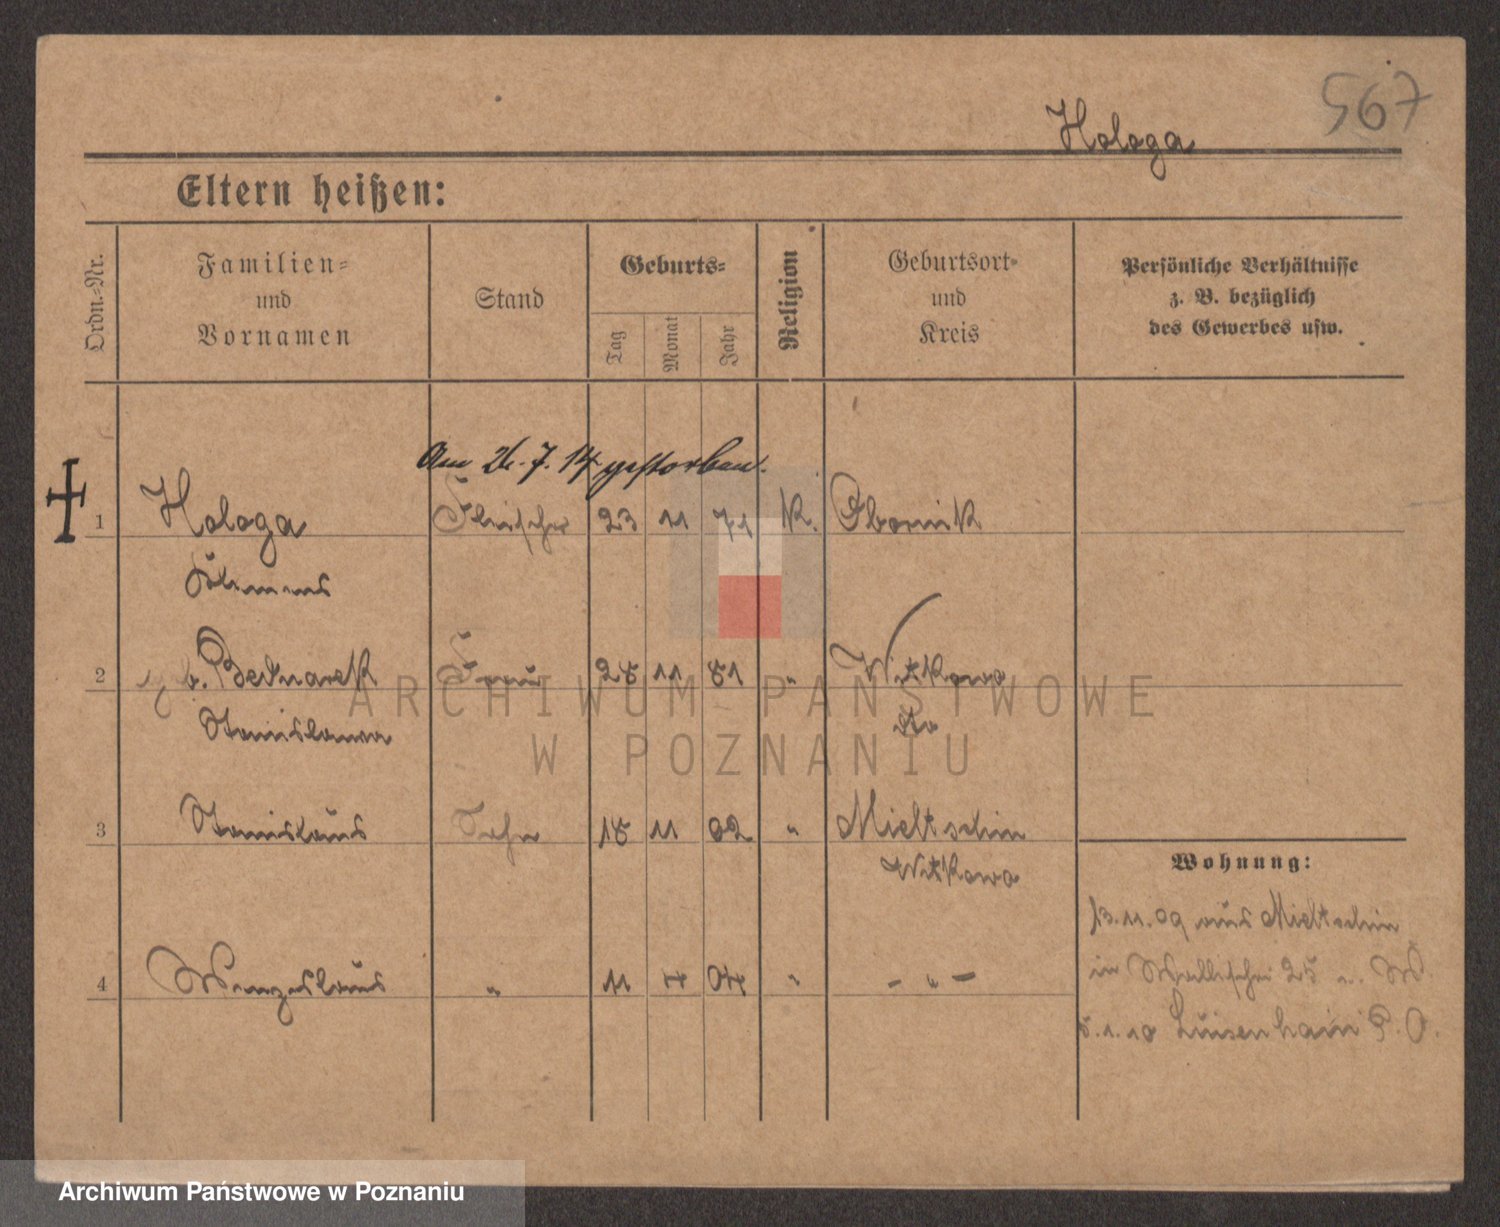 567
Hologa
Eltern heißen:
Ordn.-Nr.
Familien-
und
Vornamen
Stand
Geburts-
Tag
Monat
Jahr
Religion
Geburtsort
und
Kreis
Persönliche Verhältnisse
z. B. bezüglich
des Gewerbes usw.
Am 26. 7. 14 gestorben.
1 Hologa Fleischer 23 11 71 K. Obornik
Klemens
2 geb. Bednarek Frau 28 11 81 " Witkowo
Stanislawa do
3 Stanislaus Sohn 18 11 02 " Mieltschin
Witkowo
Wohnung:
13.11.09 aus Mieltschin
4 Wenzeslaus " 11 4 04 " - " -
in Wallischei 25
5.1.10 Luisenhain P. O.
ARCHIWUM PAŃSTWOWE
W POZNANIU
Archiwum Państwowe w Poznaniu